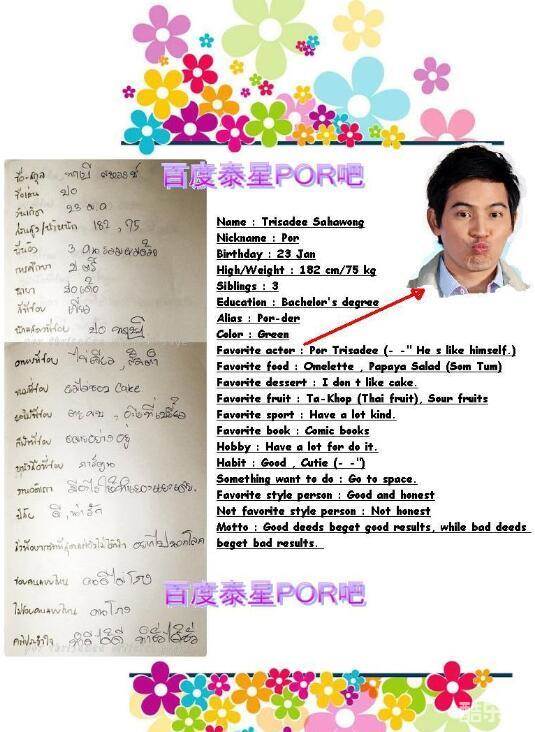 百度泰星POR吧
ชื่อ-สกุล
ชื่อเล่น ปอ
วันเกิด 23 ม.ค
182, 75
พี่น้อง 3 คน
การศึกษา ป.ตรี
ฉายา ปอเด้อ
สีที่ชอบ เขียว
ปอ ทฤษฎี
อาหารที่ชอบ ไข่เจียว, ส้มตำ
ขนมที่ชอบ ไม่ชอบ Cake
ผลไม้ที่ชอบ
กีฬาที่ชอบ หลายอย่าง
หนังสือที่ชอบ การ์ตูน
งานอดิเรก
นิสัย ดี, น่ารัก
ชอบคนแบบไหน คนดีไม่โกง
ไม่ชอบคนแบบไหน คนโกง
คติประจำใจ ทำดีได้ดี ทำชั่วได้ชั่ว
Name : Trisadee Sahawong
Nickname : Por
Birthday : 23 Jan
High/Weight : 182 cm/75 kg
Siblings : 3
Education : Bachelor's degree
Alias : Por-der
Color : Green
Favorite actor : Por Trisadee (- -" He s like himself.)
Favorite food : Omelette , Papaya Salad (Som Tum)
Favorite dessert : I don t like cake.
Favorite fruit : Ta-Khop (Thai fruit), Sour fruits
Favorite sport : Have a lot kind.
Favorite book : Comic books
Hobby : Have a lot for do it.
Habit : Good , Cutie (- -")
Something want to do : Go to space.
Favorite style person : Good and honest
Not favorite style person : Not honest
Motto : Good deeds beget good results, while bad deeds
beget bad results.
百度泰星POR吧